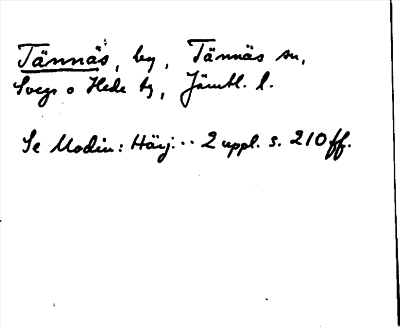 Tännäs, by, Tännäs sn,
Svegs o Hede tg, Jämtl. l.
Se Modin: Härj... 2 uppl. s. 210 ff.